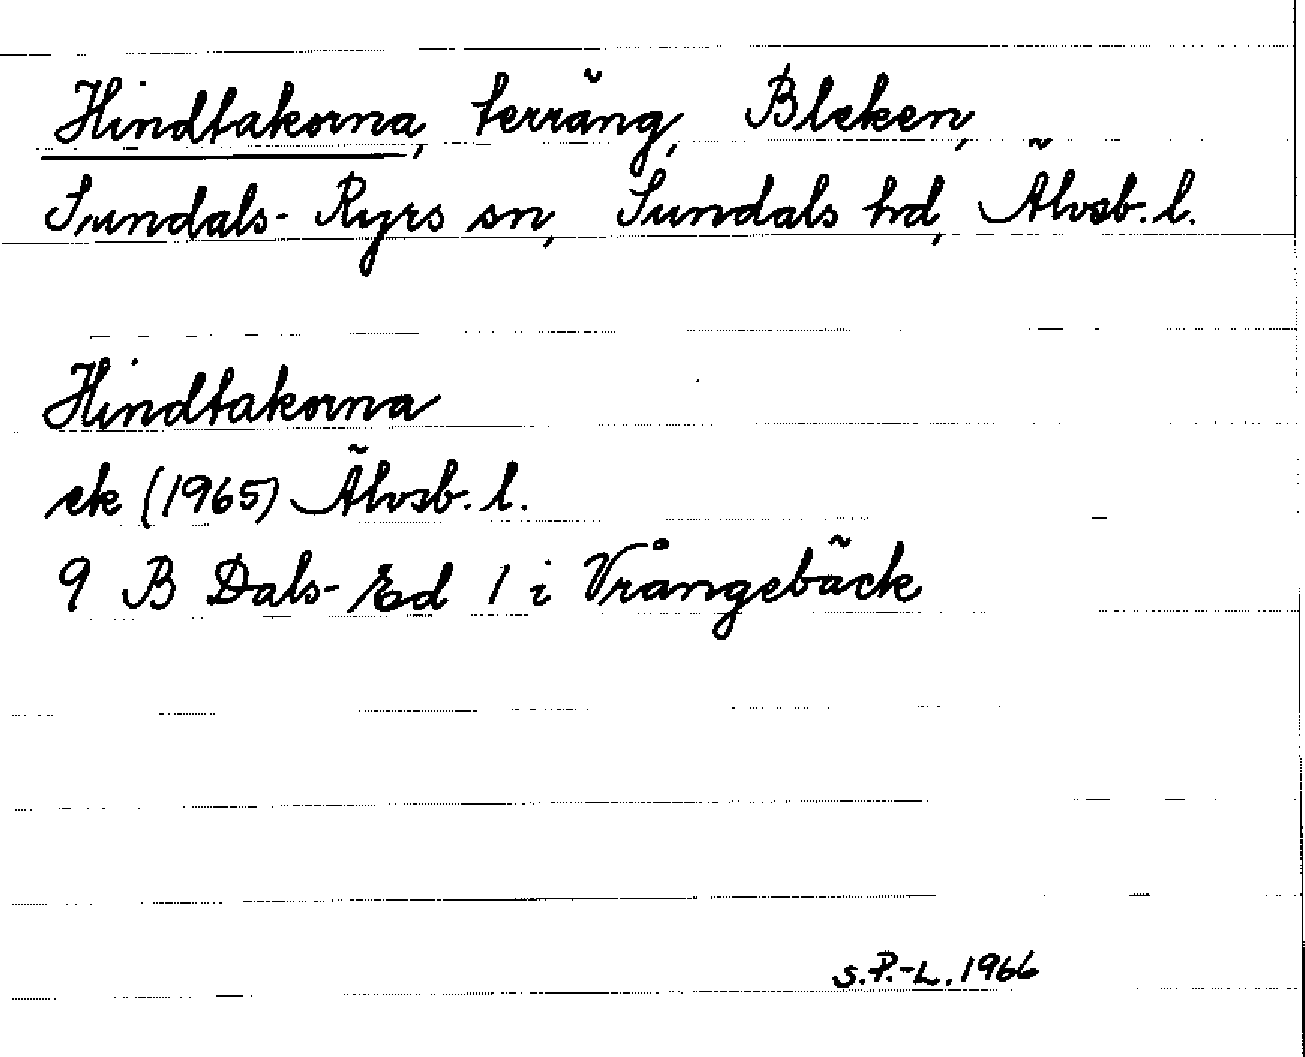 Hindtakorna, terräng, Bleken,
Sundals-Ryrs sn, Sundals hd, Älvsb. l.
Hindtakorna
ek (1965) Älvsb. l.
9 B Dals-Ed 1 i Vrångebäck
S.P.-L. 1966